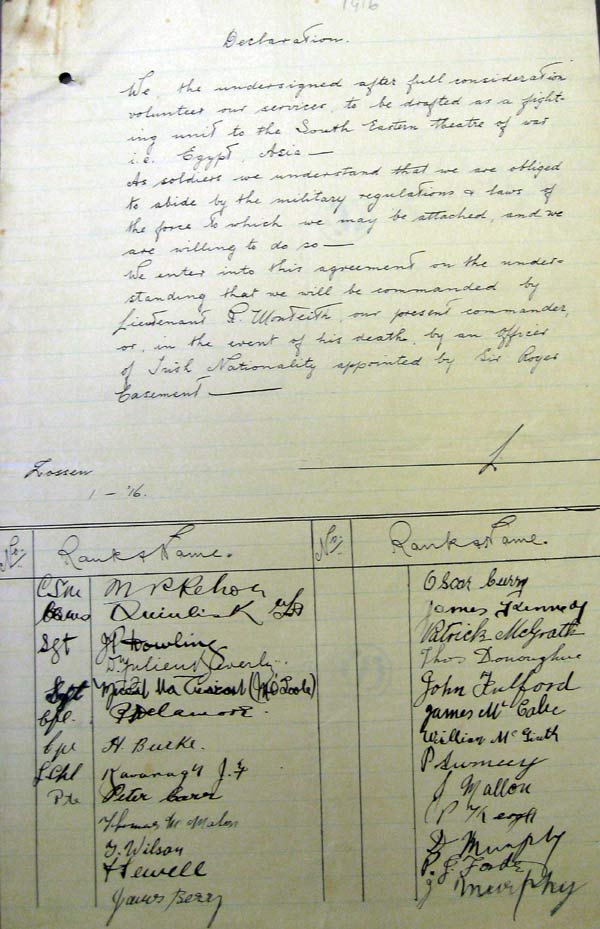 1916
Declaration.
We, the undersigned after full consideration
volunteer our services, to be drafted as a fight-
ing unit to the South Eastern theatre of war
i.e. Egypt, Asia —
As soldiers we understand that we are obliged
to abide by the military regulations & laws of
the force to which we may be attached, and we
are willing to do so —
We enter into this agreement on the under-
standing that we will be commanded by
Lieutenant R. Monteith, our present commander,
or, in the event of his death, by an Officer
of Irish Nationality appointed by Sir Roger
Casement —
Zossen
1 – '16.
No/ Rank & Name. No/ Rank & Name.
CSM Oscar Curry
Quinlisk
Sgt Dowling Patrick McGrath
Julien Thos Donoghue
Sgt (M O'Toole) John Fulford
Cpl. James McCabe
Cpl H. Burke. William McGrath
LCpl Kavanagh J. F
Pte Peter Carr J Mallon
Thomas McMahon P Keogh
J. Wilson D Murphy
Sewell
James Berry J Murphy